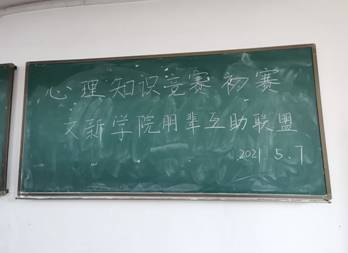 心理知识竞赛初赛
文新学院朋辈互助联盟
2021.5.7